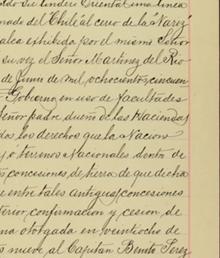 su linder Oriental una linea
nado del Chile al cerro de la Narez
alea exhibida por el mismo Señor
su vez el Señor Martinez del Rio
de Junio de mil ochocientos cincuen
Gobierno, en uso de facultades
Señor padre dueño de las Haciendas
dos los derechos que la Nacion
s, ó terrenos Nacionales dentro de
s concesiones, de fuera de que dicha
e entre tales antiguas concesiones
terior, confirmacion y cesion de
na otorgada en veintiocho de
s nueve al Capitan Benito Perez